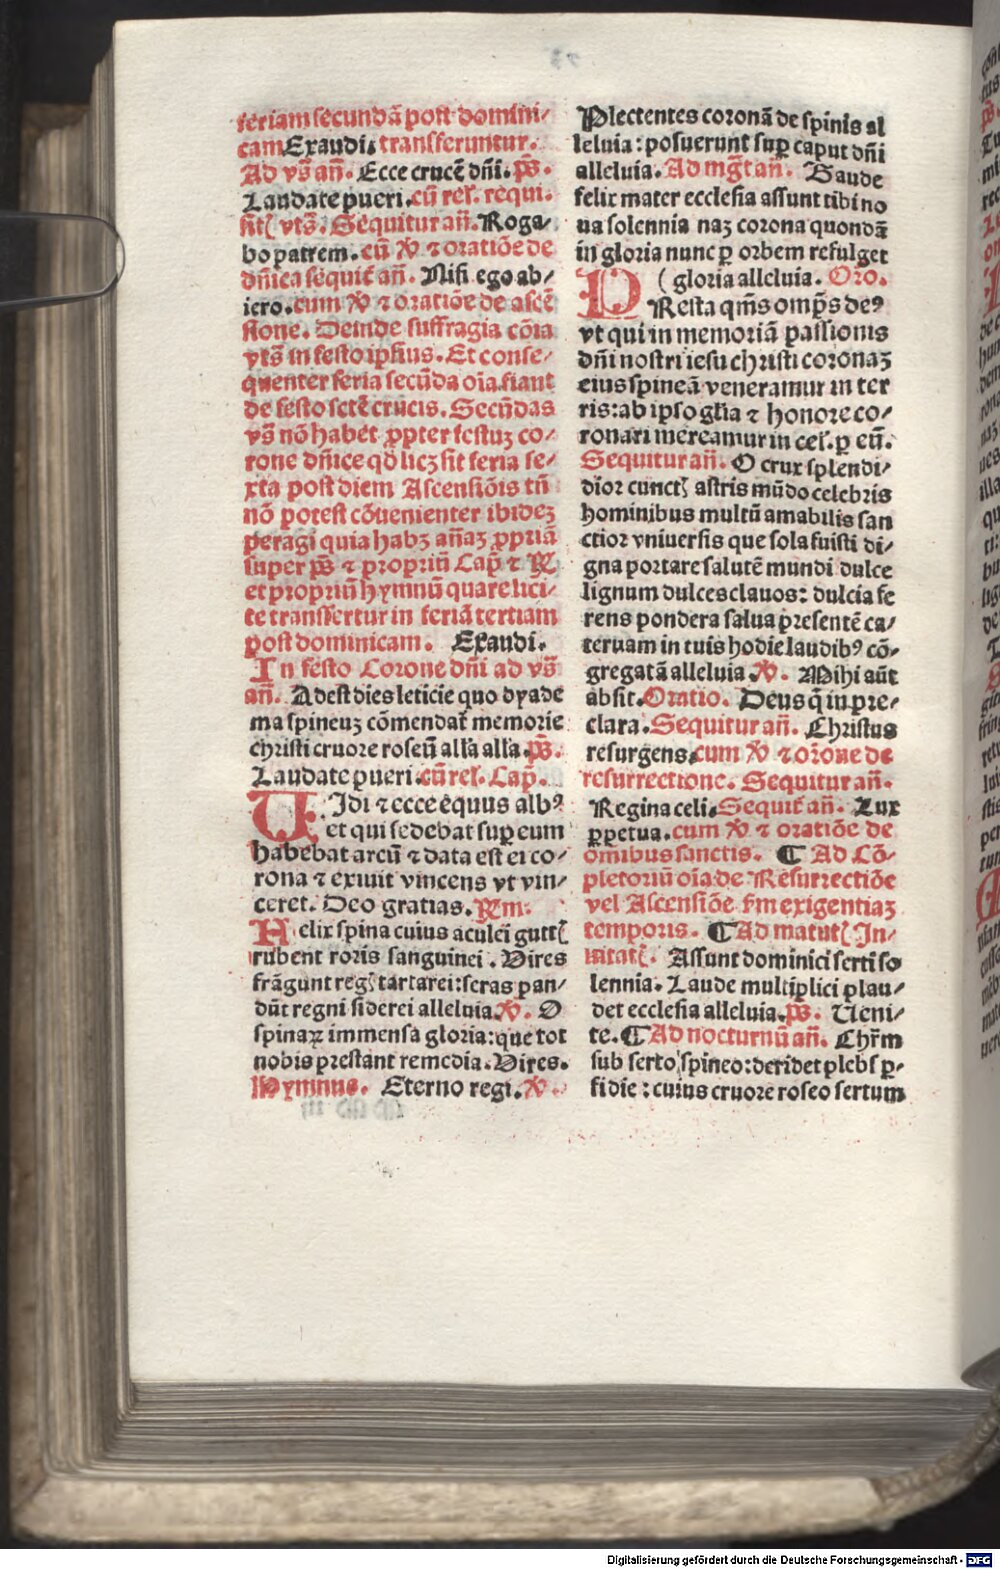 feriam secundã post domini⸗
cam Exaudi. transferuntur.
Ad vs̃ añ. Ecce crucẽ dñi. ps̃.
Laudate pueri. cũ rel. requi.
sitꝭ vts̃. Sequitur añ. Roga⸗
bo patrem. cũ ℣ ⁊ oratiõe de
dñica sequit̃ añ. Nisi ego ab⸗
iero. cum ℣ ⁊ oratiõe de ascẽ
sione. Deinde suffragia cõia
vts̃ in festo ipsius. Et conse⸗
quenter feria secũda oĩa fiant
de festo sctẽ crucis. Secũdas
vs̃ nõ habet ꝓpter festuꝫ co⸗
rone dñice qđ licꝫ sit feria se⸗
xta post diem Ascensiõis tñ
nõ potest cõuenienter ibideꝫ
peragi quia habꝫ añaꝫ ꝓpriã
super ps̃ ⁊ propriũ Cap̃ ⁊ ℟
et propriũ hymnũ quare lici⸗
te transfertur in feriã tertiam
post dominicam. Exaudi.
In festo Corone dñi ad vs̃
añ. Adest dies leticie quo dyade
ma spineuꝫ cõmendat̃ memorie
christi cruore roseũ alla alla. ps̃.
Laudate pueri. cũ rel. Cap̃.
UIdi ⁊ ecce equus albꝰ
et qui sedebat suꝑ eum
habebat arcũ ⁊ data est ei co⸗
rona ⁊ exiuit vincens vt vin⸗
ceret. Deo gratias. ℟m.
Felix spina cuius aculei guttꝭ
rubent roris sanguinei. Vires
frãgunt regꝭ tartarei: seras pan⸗
dũt regni siderei alleluia. ℣. O
spinaꝝ immensa gloria: que tot
nobis prestant remedia. Vires.
Hymnus. Eterno regi. ℣.
Plectentes coronã de spinis al
leluia: posuerunt suꝑ caput dñi
alleluia. Ad mg̃t añ. Gaude
felix mater ecclesia assunt tibi no
ua solennia naꝫ corona quondã
in gloria nunc ꝑ orbem refulget
(gloria alleluia. Oro.
PResta qm̃s omps̃ deꝰ
vt qui in memoriã passionis
dñi nostri iesu christi coronaꝫ
eius spineã veneramur in ter
ris: ab ipso glĩa ⁊ honore co⸗
ronari mereamur in cel. ꝑ eũ.
Sequitur añ. O crux splendi⸗
dior cunctꝭ astris mũdo celebris
hominibus multũ amabilis san
ctior vniuersis que sola fuisti di⸗
gna portare salutẽ mundi dulce
lignum dulces clauos: dulcia fe
rens pondera salua presentẽ ca⸗
teruam in tuis hodie laudibꝰ cõ⸗
gregatã alleluia ℣. Mihi aũt
absit. Oratio. Deus q̃ in pre⸗
clara. Sequitur añ. Christus
resurgens. cum ℣ ⁊ orõne de
resurrectione. Sequitur añ.
Regina celi. Sequit̃ añ. Lux
ꝑpetua. cum ℣ ⁊ oratiõe de
omnibus sanctis. ¶ Ad Cõ⸗
pletoriũ oĩa de Resurrectiõe
vel Ascensiõe fm̃ exigentiaꝫ
temporis. ¶ Ad matutꝭ In⸗
uitatꝭ. Assunt dominici serti so
lennia. Laude multiplici plau⸗
det ecclesia alleluia. ps̃. Ueni⸗
te. ¶ Ad nocturnũ añ. Chrm̃
sub serto spineo: deridet plebs ꝑ⸗
fidie: cuius cruore roseo sertum
Digitalisierung gefördert durch die Deutsche Forschungsgemeinschaft - DFG